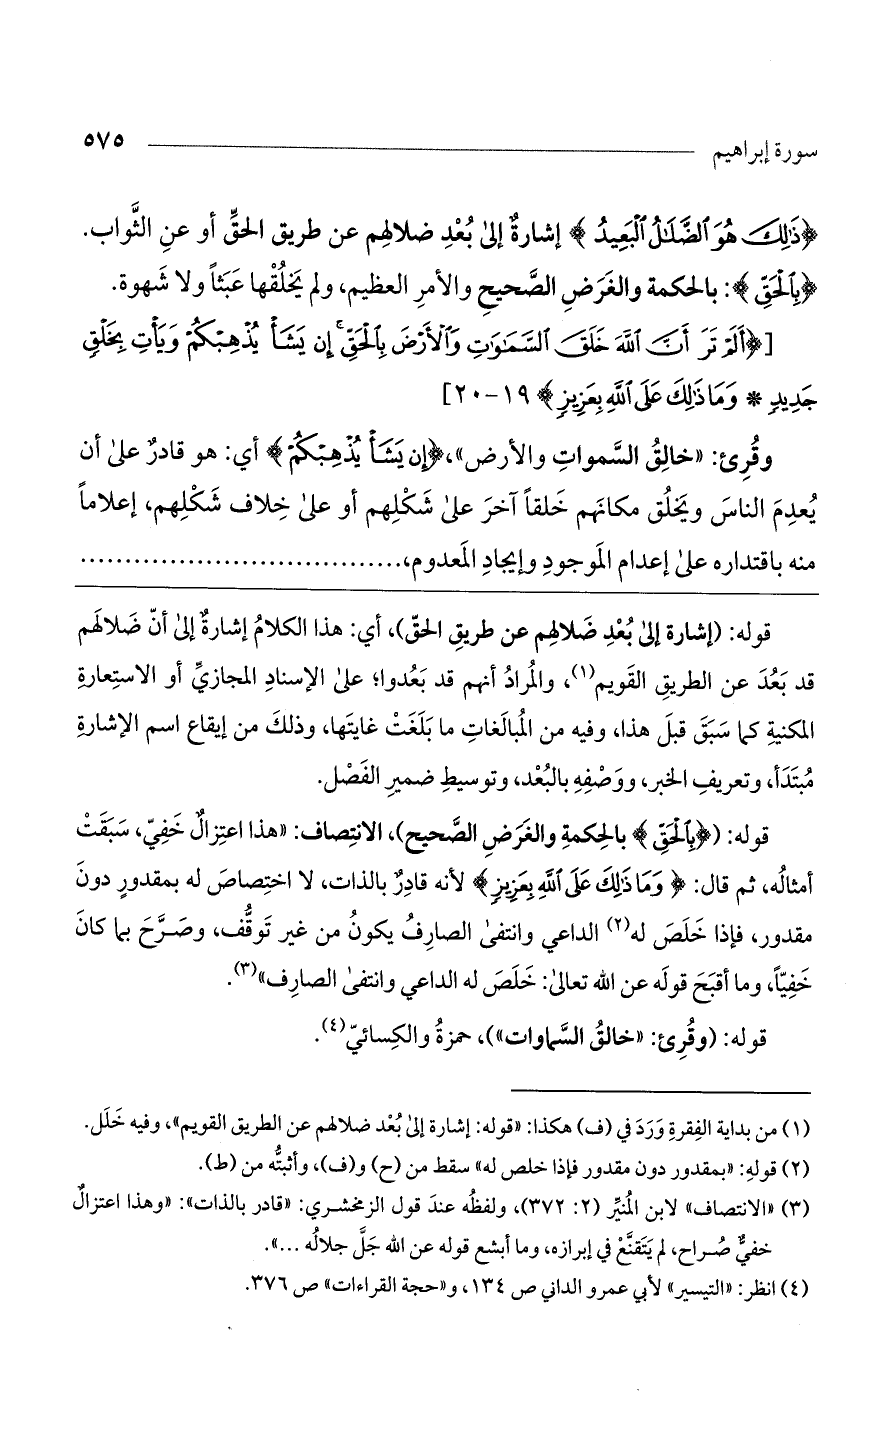 سورة إبراهيم ٥٧٥
﴿ذَٰلِكَ هُوَ ٱلضَّلَٰلُ ٱلْبَعِيدُ﴾ إشارةٌ إلىٰ بُعْدِ ضلالهِم عن طريق الحقِّ أو عنِ الثَّواب.
﴿بِٱلْحَقِّ﴾: بالحكمة والغَرَضِ الصَّحيحِ والأمرِ العظيم، ولم يَخلُقْها عَبَثاً ولا شَهوة.
[﴿أَلَمْ تَرَ أَنَّ ٱللَّهَ خَلَقَ ٱلسَّمَٰوَٰتِ وَٱلْأَرْضَ بِٱلْحَقِّ ۚ إِن يَشَأْ يُذْهِبْكُمْ وَيَأْتِ بِخَلْقٍ
جَدِيدٍ * وَمَا ذَٰلِكَ عَلَى ٱللَّهِ بِعَزِيزٍ﴾ ١٩-٢٠]
وقُرِئ: «خالِقُ السَّمواتِ والأرض»، ﴿إِن يَشَأْ يُذْهِبْكُمْ﴾ أي: هو قادرٌ علىٰ أن
يُعدِمَ الناسَ ويَخلُق مكانَهم خَلقاً آخرَ علىٰ شَكْلِهم أو علىٰ خِلاف شَكْلِهم، إعلاماً
منه باقتداره علىٰ إعدام المَوجودِ وإيجادِ المَعدوم، ..................................
قوله: (إشارة إلىٰ بُعْدِ ضَلالهِم عن طريقِ الحقّ)، أي: هذا الكلامُ إشارةٌ إلىٰ أنّ ضَلالَهم
قد بَعُدَ عن الطريقِ القَويم(١)، والمُرادُ أنهم قد بَعُدوا؛ علىٰ الإسنادِ المجازيِّ أو الاستِعارةِ
المكنيةِ كما سَبَقَ قبلَ هذا، وفيه من المُبالَغاتِ ما بَلَغَتْ غايتَها، وذلكَ من إيقاع اسم الإشارةِ
مُبتَدَأ، وتعريفِ الخبر، ووَصْفِهِ بالبُعْد، وتوسيطِ ضميرِ الفَصْل.
قوله: (﴿بِٱلْحَقِّ﴾ بالحِكمةِ والغَرَضِ الصَّحيح)، الانتِصاف: «هذا اعتِزالٌ خَفِيّ، سَبَقَتْ
أمثالُه، ثم قال: ﴿وَمَا ذَٰلِكَ عَلَى ٱللَّهِ بِعَزِيزٍ﴾ لأنه قادِرٌ بالذات، لا اختِصاصَ له بمقدورٍ دونَ
مقدور، فإذا خَلَصَ له(٢) الداعي وانتفىٰ الصارِفُ يكونُ من غير تَوقُّف، وصرَّحَ بما كانَ
خَفِيّاً، وما أقبَحَ قولَه عن الله تعالىٰ: خَلَصَ له الداعي وانتفىٰ الصارِف»(٣).
قوله: (وقُرِئ: «خالقُ السَّماوات»)، حمزةُ والكِسائيّ(٤).
(١) من بداية الفِقرةِ وَرَدَ في (ف) هكذا: «قوله: إشارة إلىٰ بُعْد ضلالهم عن الطريق القويم»، وفيه خَلَل.
(٢) قولهِ: «بمقدور دون مقدور فإذا خلص له» سقط من (ح) و(ف)، وأثبتُّه من (ط).
(٣) «الانتصاف» لابن المُنيِّر (٢: ٣٧٢)، ولفظُه عندَ قول الزمخشري: «قادر بالذات»: «وهذا اعتزالٌ
خفيٌّ صُراح، لم يَتَقنَّعْ في إبرازه، وما أبشع قوله عن الله جَلَّ جلالُه ...».
(٤) انظر: «التيسير» لأبي عمرو الداني ص ١٣٤، و«حجة القراءات» ص ٣٧٦.